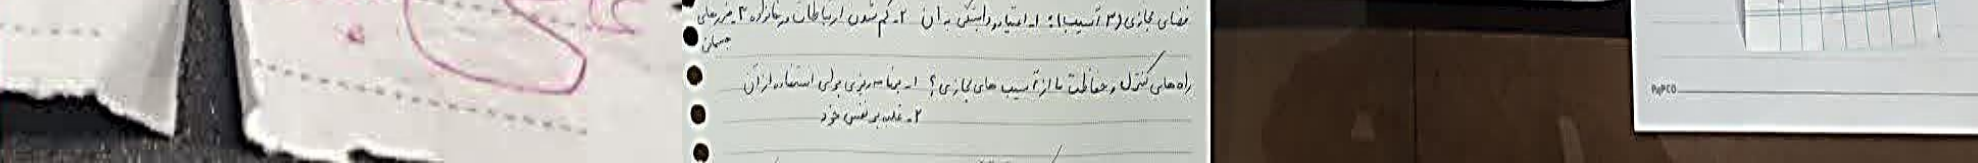 فضای مجازی (۳ آسیب): ۱ـ اعتیاد و وابستگی به آن ۲ـ کم شدن ارتباطات در خانواده ۳ـ ضررهای
جسمانی
راه های کنترل و حفاظت ما از آسیب های مجازی؟ ۱ـ برنامه ریزی برای استفاده از آن
۲ـ غلبه بر نفس خود
PAPCO